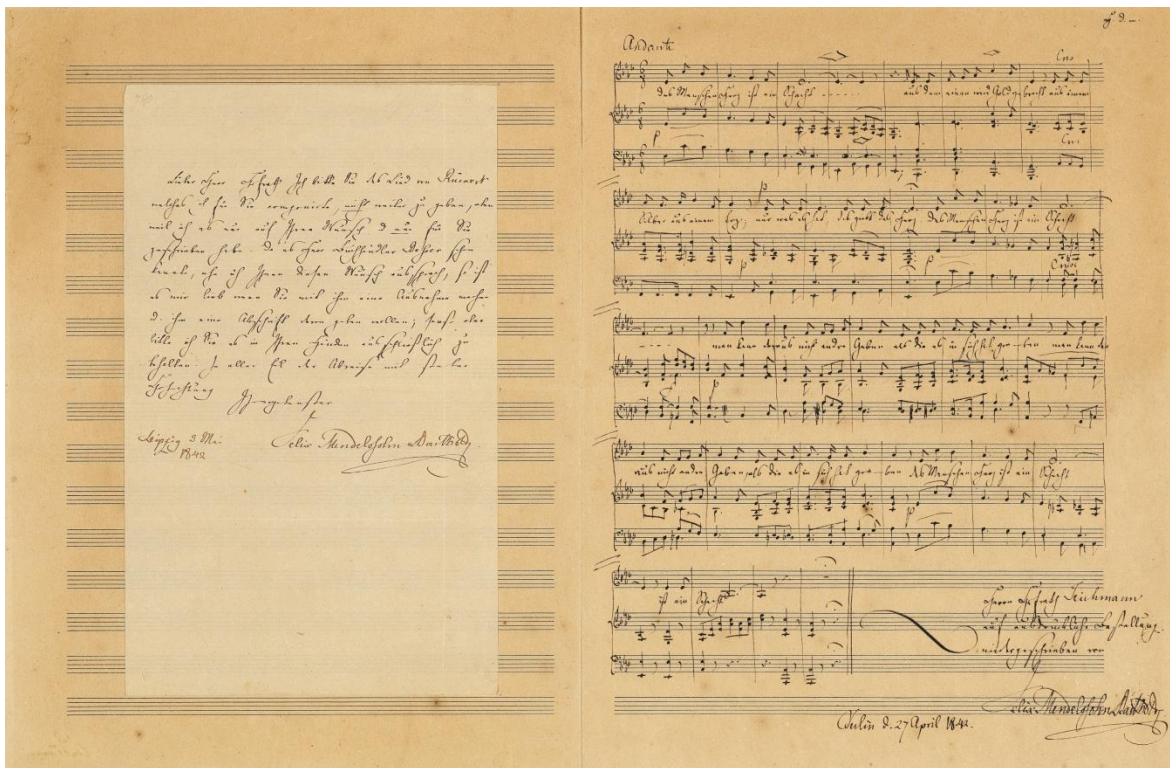 Lieber Herr Hofrath Ich bitte Sie das Lied von Rückert
welches ich für Sie componirte, nicht weiter zu geben, eben
weil ich es nur auf Ihren Wunsch u. nur für Sie
geschrieben habe. Da es Herr Buchhändler schon
kennt, ehe ich Ihnen diesen Wunsch aussprach, so ist
es mir lieb wenn Sie mit ihm eine Ausnahme machen
u. ihm eine Abschrift davon geben wollen; sonst aber
bitte ich Sie es in Ihren Händen ausschließlich zu
behalten. In aller Eil der Abreise mit steter
Hochachtung Ihr ergebenster
Felix Mendelssohn Bartholdy
Leipzig 3 Mai
1842
Andante
Cres
des Menschen Herz ist ein Schacht - - - - - aus dem einen wird Gold gebracht aus einem
p
Cres
Silber aus einem Erz; nur was es hat, das giebt das Herz. des Menschen Herz ist ein Schacht
p
- - - - man kann daraus nicht andre Gaben als die es in sich hat graben man kann dar
p
aus nicht andre Gaben, als die es in sich hat graben des Menschen Herz ist ein Schacht
p
ist ein Schacht
Herrn Hofrath Teichmann
auf ausdrückliche Bestellung
niedergeschrieben von
Felix Mendelssohn Bartholdy
Berlin d. 27 April 1842.